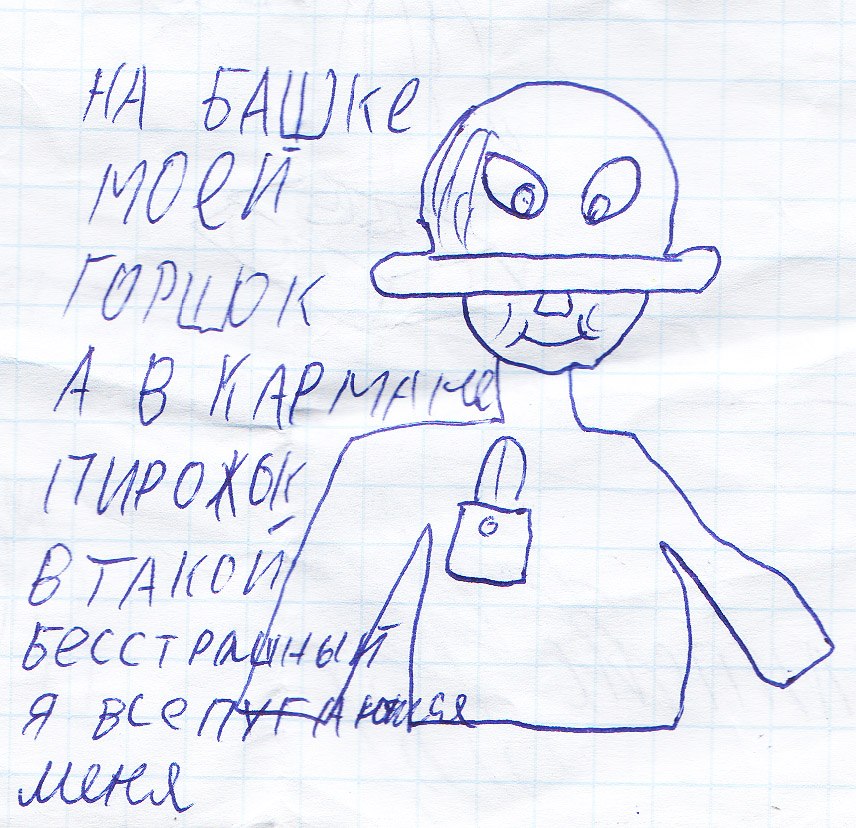 НА БАШКе
МОей
ГОРШОК
А В КАРМАНе
ПИРОЖОК
В ТАКОЙ
БеССТРАШНЫЙ
Я ВСе ПУГАЮТСЯ
МеНЯ